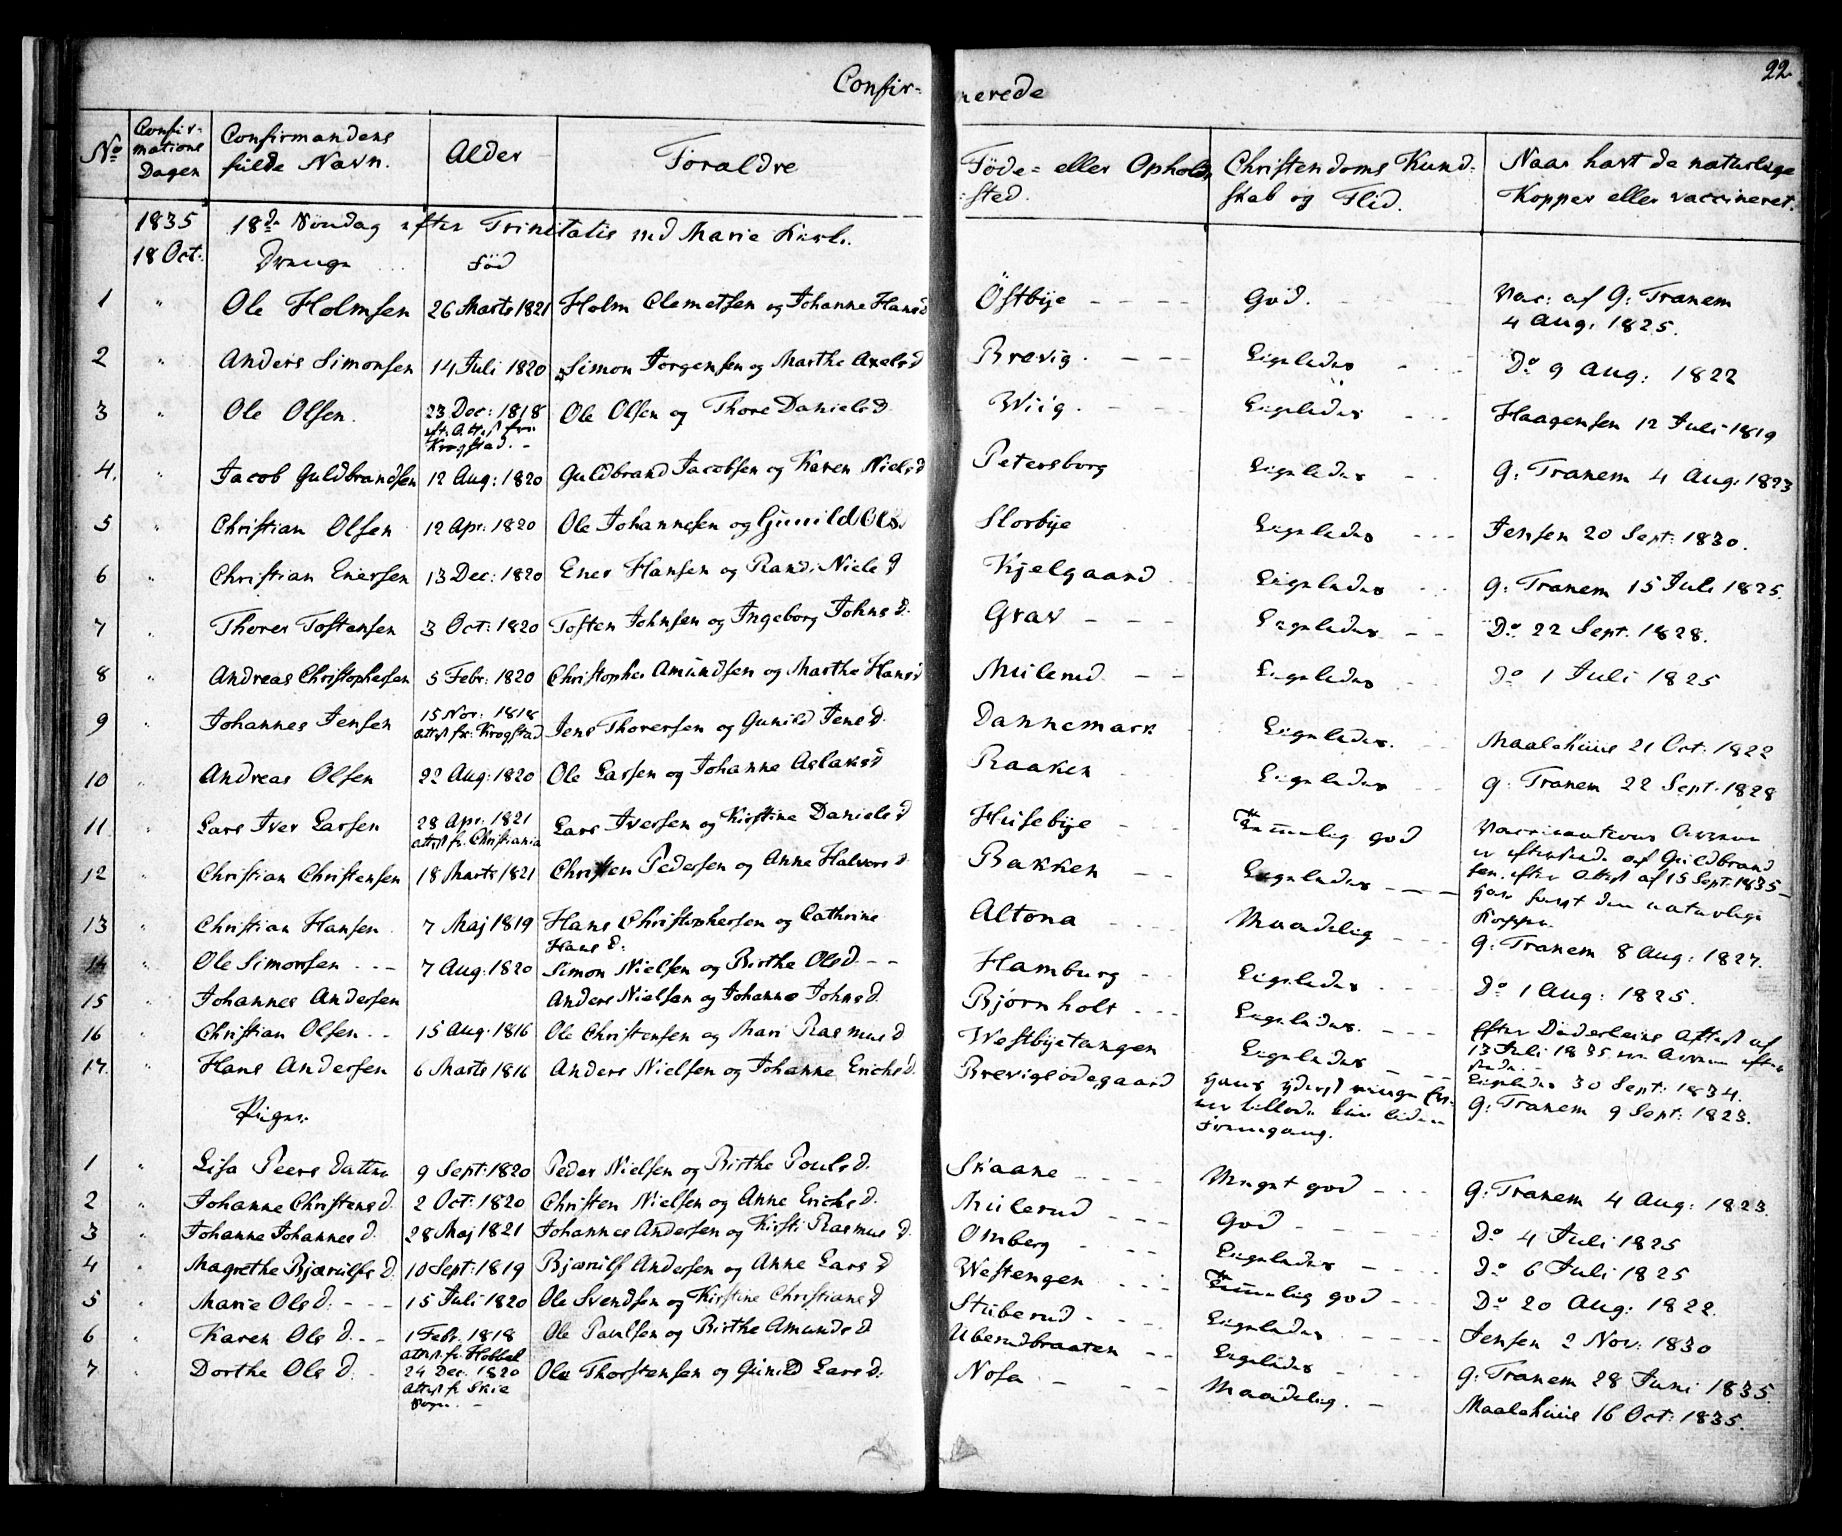 Confir- merede
22.
No | Confir-mations Dagen | Confirmandens fulde Navn. | Alder | Foraldre | Föde- eller Opholds-sted. | Christendoms Kund-skab og Flid. | Naar havt de naturlige Kopper eller vaccineret.
1835 18de Söndag efter Trinitatis ved Marie Kirke.
18 Oct: Drenge Föd
1 " Ole Holmsen | 26 Marts 1821 | Holm Clemetsen og Johanne Hansd | Östbye | God. | Vac: af G: Tranem 4 Aug. 1825.
2 " Anders Simonsen | 14 Juli 1820 | Simon Jorgensen og Marthe Axelsd | Brevig. | Ligeledes | Do 9 Aug: 1822
3 " Ole Olsen. | 23 Dec: 1818 eft. Attest fra Krogstad. | Ole Olsen og Thore Danielsd | Wiig. | Ligeledes | Haagensen 12 Juli 1819
4. " Jacob Guldbrandsen | 12 Aug: 1820 | Guldbrand Jacobsen og Karen Nielsd | Petersborg | Ligeledes | G: Tranem 4 Aug: 1823
5 " Christian Olsen | 12 Apr: 1820 | Ole Johannesen og Gunild Ols. | Storbye | Ligeledes | Jensen 20 Sept: 1830.
6 " Christian Enersen | 13 Dec: 1820 | Ener Hansen og Randi Niels d | Kjelgaard | Ligeledes | G: Tranem 15 Juli 1825.
7 " Thorer Tostensen | 3 Oct: 1820 | Tosten Johnsen og Ingeborg Johns d. | Grav | Ligeledes | Do 22 Sept. 1828.
8 " Andreas Christophersen | 5 Febr: 1820 | Christopher Amundsen og Marthe Hansd | Mulerud | Ligeledes | Do 1 Juli 1825
9 " Johannes Jensen | 15 Nov: 1818 Attest fr. Krogstad | Jens Thorersen og Gunild Jensd. | Dannemark | Ligeledes. | Maalehuus 21 Oct: 1822
10 " Andreas Olsen | 22 Aug: 1820 | Ole Larsen og Johanne Aslaksd | Raaken | Ligeledes | G: Tranem 22 Sept. 1828
11 " Lars Iver Larsen | 28 Apr: 1821 Attest fr. Christiania | Lars Iversen og Kirstine Daniels d | Husebye | Temmelig god | Vaccinanteus Navn er eftersende af Guldbrand sen. efter Attest af 15 Sept: 1835
12 " Christian Christensen | 18 Marts 1821 | Christen Pedersen og Anne Halvors d | Bakken | Ligeledes | har havt den naturlige Kopper.
13 " Christian Hansen | 7 Maj 1819 | Hans Christophersen og Cathrine Hans d. | Altona | Maadelig | G: Tranem 8 Aug: 1827.
14 " Ole Simonsen | 7 Aug: 1820 | Simon Nielsen og Birthe Olsd | Hamburg | Ligeledes | Do 1 Aug: 1825.
15 " Johannes Andersen | Anders Nielsen og Johanne Johnsd. | Bjørnholt | Ligeledes. | Efter Attest af 13 Juli 1835
16 " Christian Olsen | 15 Aug. 1816 | Ole Christensen og Mari Rasmus d | Westbyetangen | Ligeledes | Ligeledes 30 Sept: 1834.
17. " Hans Andersen | 6 Marts 1816 | Anders Nielsen og Johanne Erichsd. | Brevigsödegaard | Fremgang. | G: Tranem 9 Sept: 1823.
Piger.
1 " Lisa Peers datter | 9 Sept: 1820 | Peder Nielsen og Birthe Pouls d. | Skaane | Meget god | G: Tranem 4 Aug: 1823.
2 " Johanne Christensd. | 2 Oct: 1820 | Christen Nielsen og Anne Erichsd. | Mulerud | God | Do 4 Juli 1825
3 " Johanne Johannesd. | 28 Maj 1821 | Johannes Andersen og Kirsti Rasmus d. | Omberg | Ligeledes | Do 6 Juli 1825
4 " Magrethe Bjærulfs d. | 10 Sept: 1819 | Bjærulf Andersen og Anne Lars d | Westengen | Temmelig god | Do 20 Aug: 1822.
5 " Marie Olsd. | 15 Juli 1820 | Ole Svendsen og Kirstine Christiansd | Stuberud | Ligeledes | Jensen 2 Nov: 1830
6 " Karen Ols d. | 1 Febr. 1818 Attest fr. Hobbel | Ole Paulsen og Birthe Amunds d | Uberudbraaten | Ligeledes | G: Tranem 28 Juni 1835.
7 " Dorthe Ols d. | 24 Dec: 1820 Attest fr Skie Sogn. | Ole Thorstensen og Gunild Larsd. | Nosa | Maadelig. | Maalehuus 16 Oct: 1835.